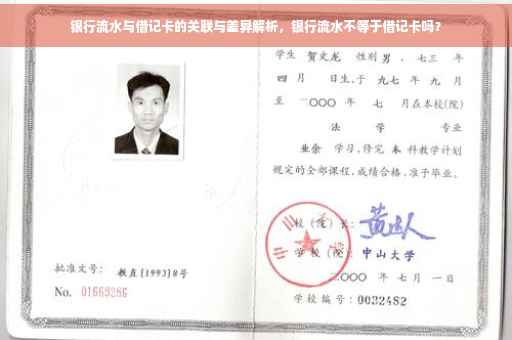 银行流水与借记卡的关联与差异解析，银行流水不等于借记卡吗？
学生 贺文龙 性别 男，七三 年
四 月 日生，于 九七 年 九 月
至 二〇〇〇 年 七 月在本校(院)
法 学 专业
业余 学习，修完 本 科教学计划
规定的全部课程，成绩合格，准予毕业。
校(院)长：
学校(院)：中山大学
二〇〇〇 年 七 月 一 日
学校编号：0032482
批准文号：教直[1993]8号
No. 01669286